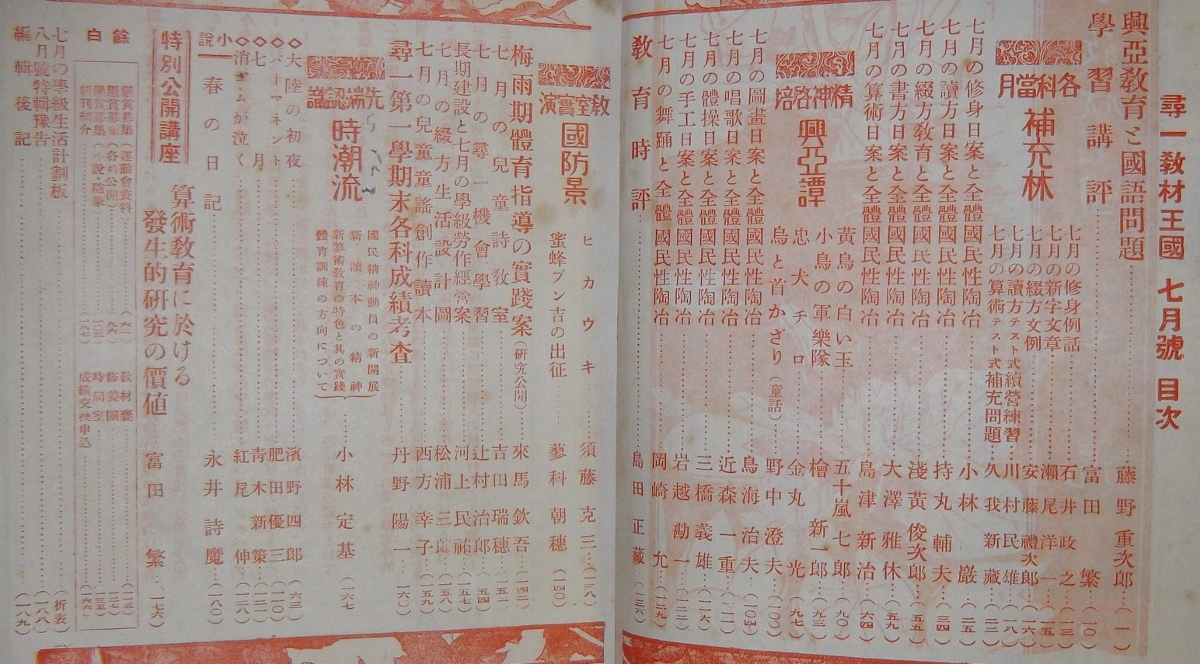 尋一敎材王國 七月號 目次
興亞敎育と國語問題……藤野重次郎…(一)
學習講評……富田繁…(一〇)
各科當月
補充林
七月の修身例話……石井政之…(一三)
七月の新字文章……瀨尾洋一…(一五)
七月の綴方文例……安藤禮次郎…(一六)
七月の讀方テスト式續營練習……川村民雄…(一八)
七月の算術テスト式補充問題……久我新藏…(二三)
七月の修身日案と全體國民性陶冶……小林巖…(二五)
七月の讀方日案と全體國民性陶冶……持丸輔夫…(三四)
七月の綴方敎育と全體國民性陶冶……淺黃俊次郎…(五五)
七月の書方日案と全體國民性陶冶……大澤雅休…(五九)
七月の算術日案と全體國民性陶冶……島津新治…(六八)
精神啓培
興亞譚
黃鳥の白い玉……五十嵐七郎…(九〇)
小鳥の軍樂隊……檜新一郎…(九三)
忠犬チロ……金丸光…(九七)
烏と首かざり(童話)……野中澄夫…(一〇〇)
七月の圖畫日案と全體國民性陶冶……鳥海治夫…(一〇四)
七月の唱歌日案と全體國民性陶冶……近森一重…
七月の體操日案と全體國民性陶冶……三橋義雄…
七月の手工日案と全體國民性陶冶……岩越勘一…
七月の舞踊と全體國民性陶冶……岡崎允…(一二九)
敎育時評……島田正藏…(一三六)
敎室實演
國防景
ヒカウキ……須藤克三…(一三八)
蜜蜂ブン吉の出征……蓼科朝穗…(一四四)
梅雨期體育指導の實踐案(硏究公開)……來馬欽吾…
七月の兒童詩敎室……吉田瑞穗…(一五二)
七月の尋一機會學習……辻村治郎…(一五四)
長期建設と七月の學級勞作經營案……河上民祐…
七月の綴方生活設計圖……松浦三郎…
七月の兒童童謠創作讀本……西方幸子…(一五九)
尋一第一學期末各科成績考査……丹野陽一…(一六〇)
先端認識
時潮流
國民精神動員の新開展
新讀本の精神
新算術敎育の特色と其の實踐
體育訓練の方向について
小林定基…(一六七)
◇大陸の初夜……濱野四郎…(六三)
◇パーマネント……肥田優三…
◇七月……靑木新策…
◇消ゴムが泣く……紅尾伸…(一三八)
小說 春の日記……永井詩魔…(一八〇)
特別公開講座
算術敎育に於ける發生的硏究の價値……富田繁…(一七六)
餘白
懸賞募集(運動會資料)……(六二)
懸賞募集(各科公開)
懸賞募集(小說・隨筆)
新刊紹介……(一八七)
敎材囊
修養園
時局室
成績交換申込
七月の學級生活計劃板……(折表)
八月號特輯豫告……(一八八)
編輯後記……(一八九)